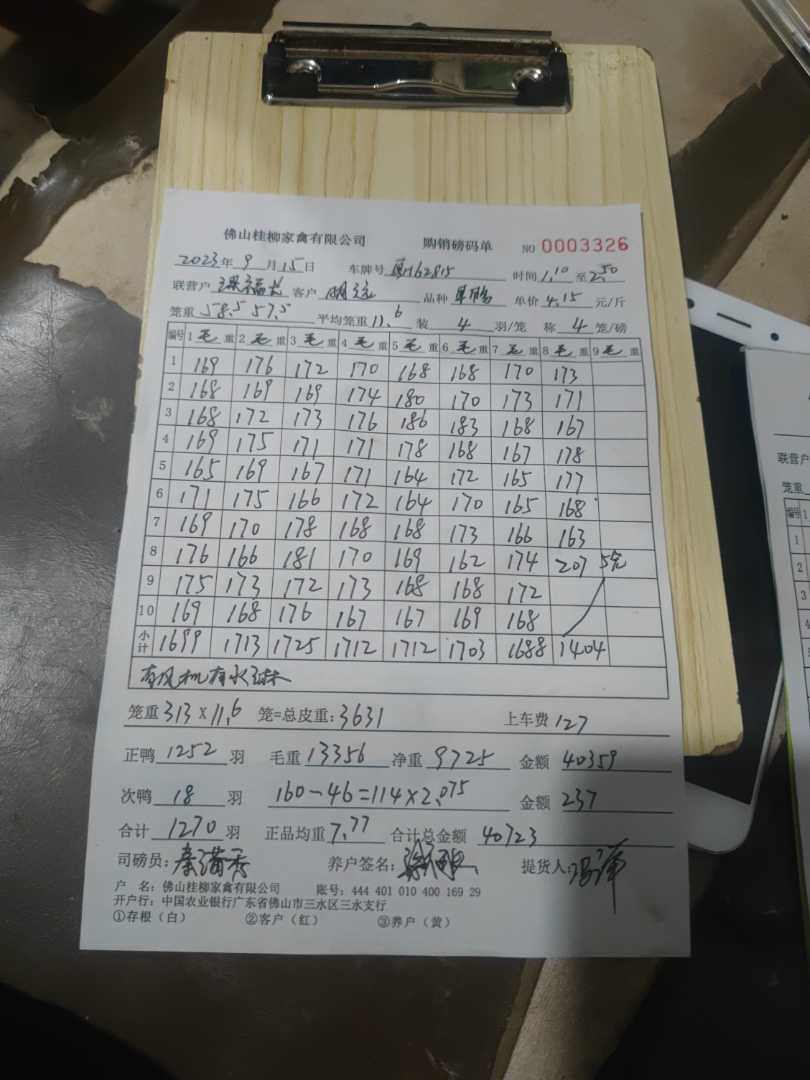 佛山桂柳家禽有限公司 购销磅码单 NO 0003326
2023年 9 月 15日 车牌号 162815 时间 1.10 至 2.50
联营户 客户 明 品种 单价 4.15 元/斤
笼重 58.5 57.5 平均笼重 11.6 装 4 羽/笼 称 4 笼/磅
编号 1 毛 重 2 毛 重 3 毛 重 4 毛 重 5 毛 重 6 毛 重 7 毛 重 8 毛 重 9 毛 重
1 169 176 172 170 168 168 170 173
2 168 169 169 174 180 170 173 171
3 168 172 173 176 186 183 168 167
4 169 175 171 171 178 168 167 178
5 165 169 167 171 164 172 165 177
6 171 175 166 172 164 170 165 168
7 169 170 178 168 168 173 166 163
8 176 166 181 170 169 162 174 207 5笼
9 175 173 172 173 168 168 172
10 169 168 176 167 167 169 168
小计 1699 1713 1725 1712 1712 1703 1688 1404
有风机有水淋
笼重 313 X 11.6 笼=总皮重: 3631 上车费 127
正鸭 1252 羽 毛重 13356 净重 9725 金额 40359
次鸭 18 羽 160-46=114×2.075 金额 237
合计 1270 羽 正品均重 7.77 合计总金额 40723
司磅员: 秦满秀 养户签名: 提货人:
户 名: 佛山桂柳家禽有限公司 账号: 444 401 010 400 169 29
开户行: 中国农业银行广东省佛山市三水区三水支行
①存根(白) ②客户(红) ③养户(黄)
联营户
笼重
编号 1
1
2
3
4